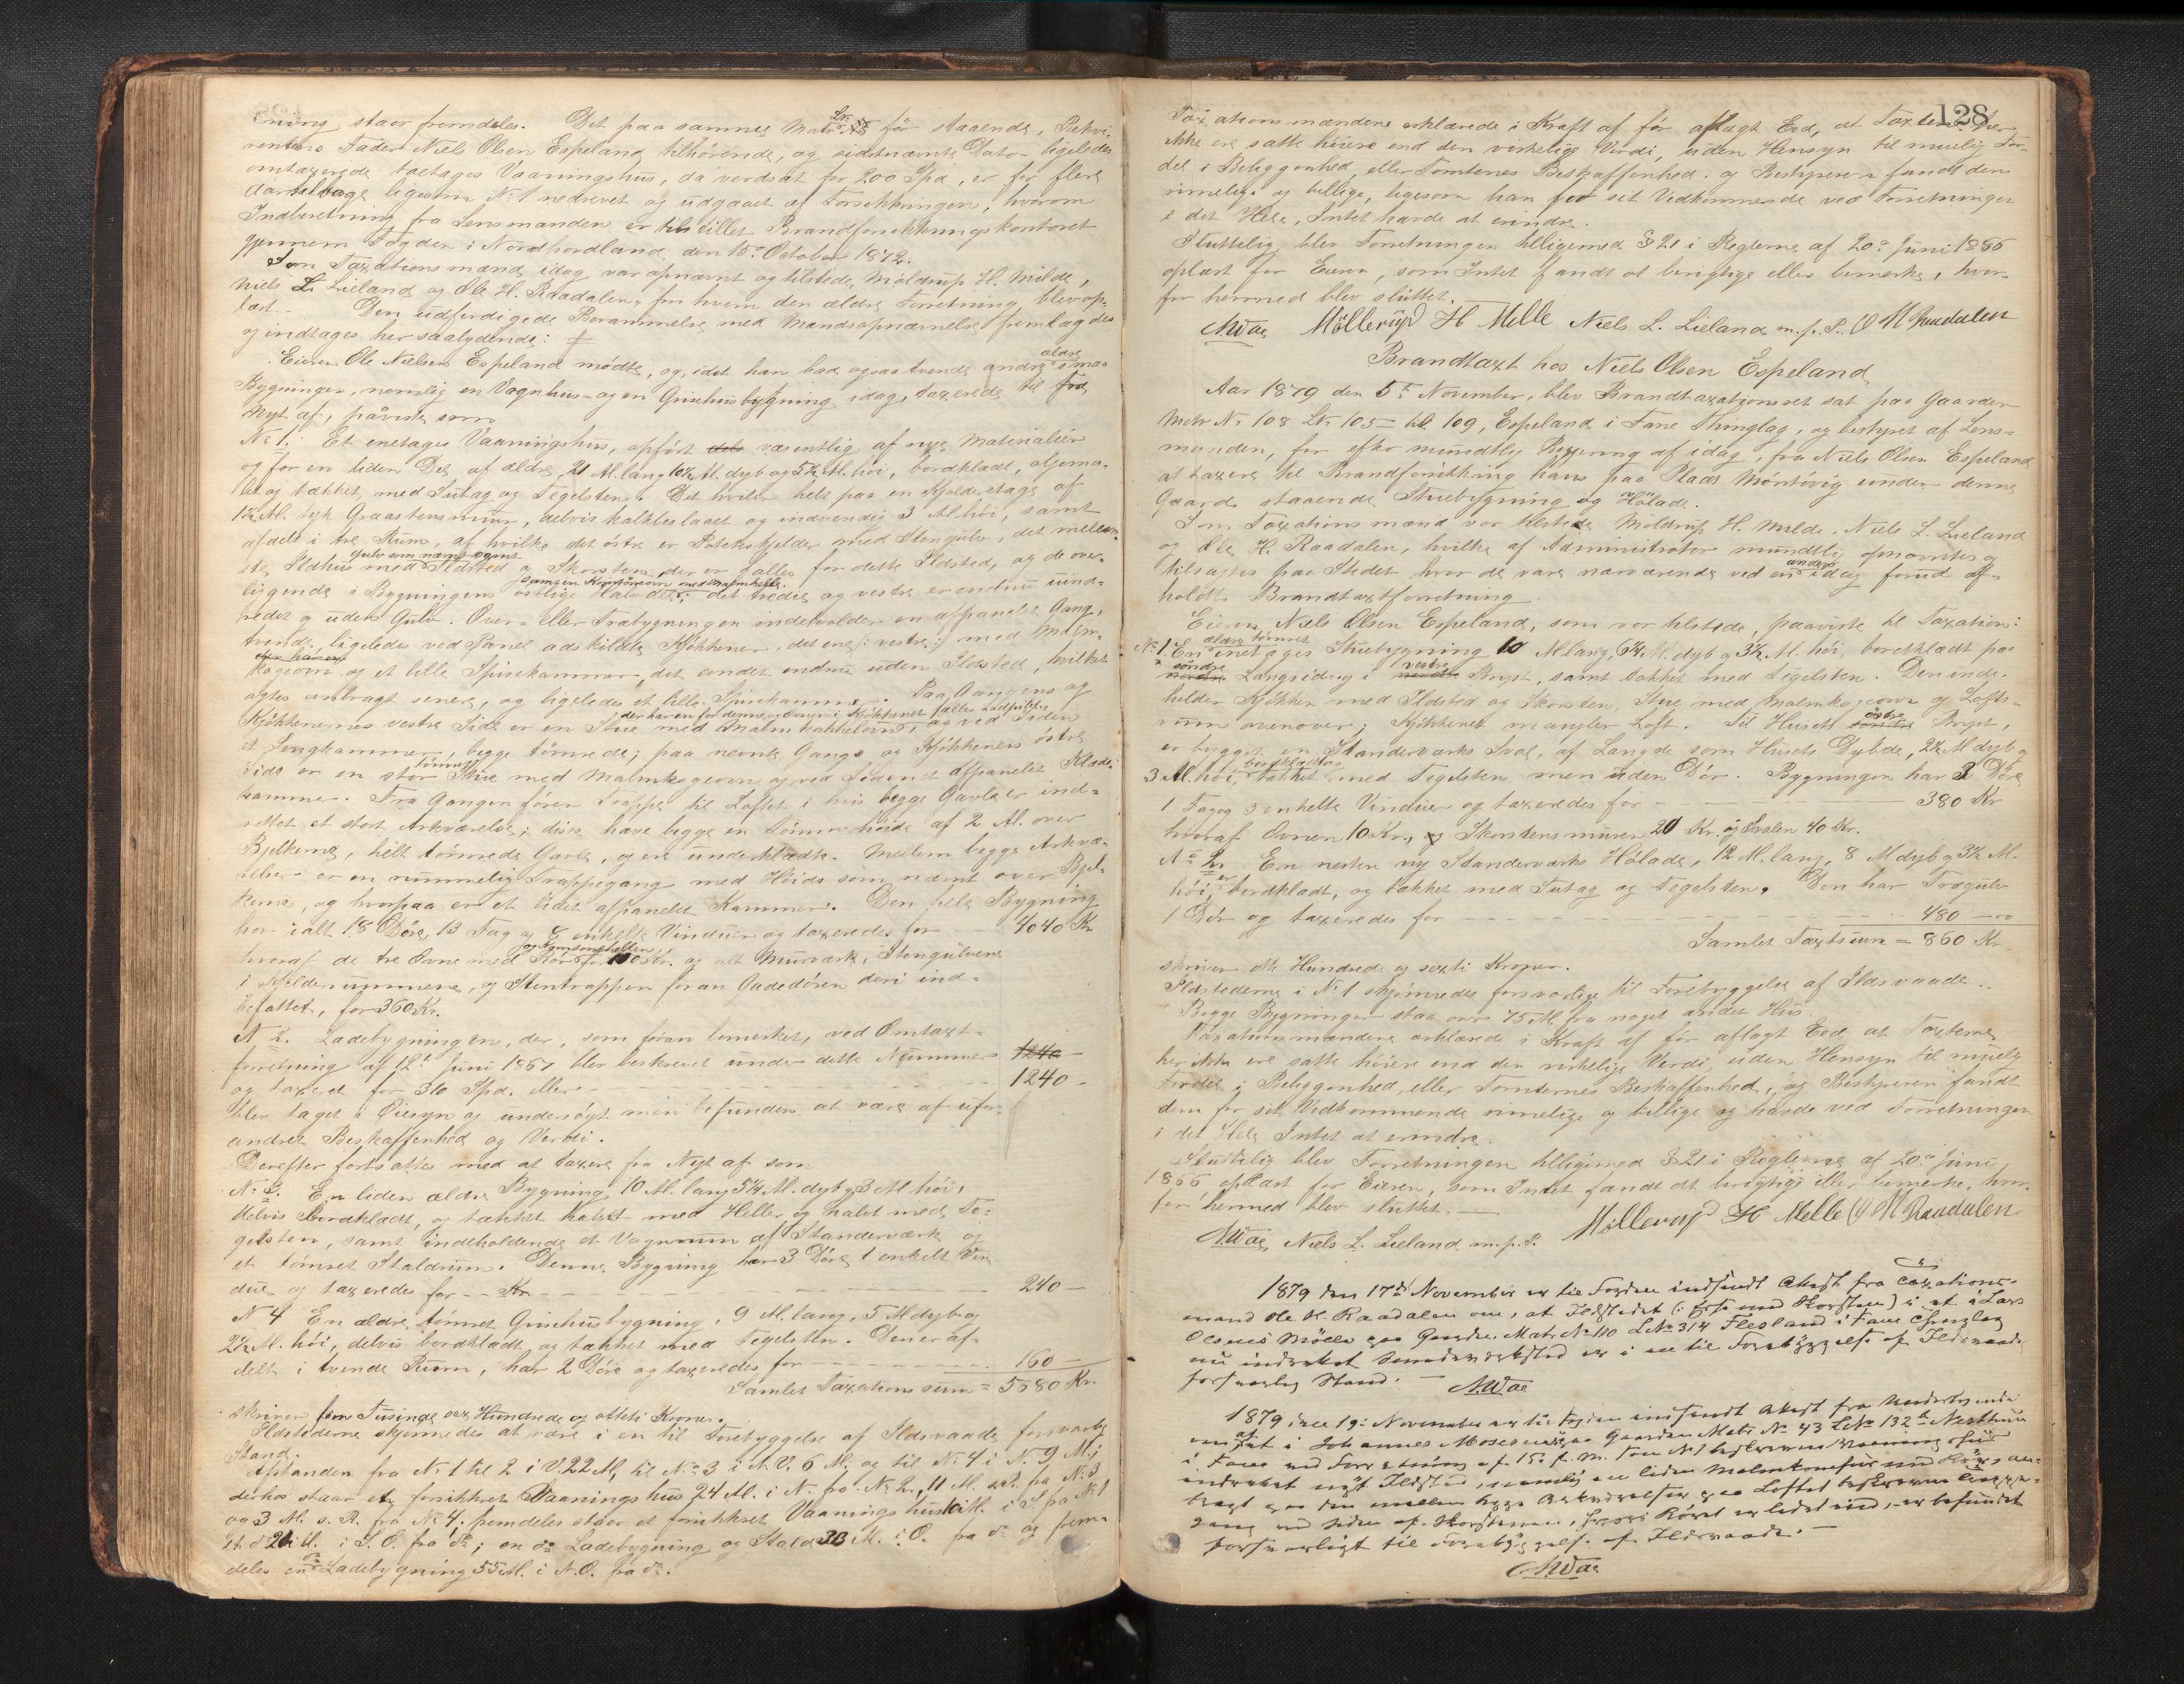 ning staar fremdeles. Det paa samme Matr. № før staaende, Rekvi-
rentens Fader Niels Olsen Espeland tilhørende, og sidstnævnte Dato ligeledes
omtaxerede toetages Vaaningshus, da værdsat for 200 Spd, er for flere
Aar tilbage ligesom № 1 nedrevet og udgaaet af Forsikringen, hvorom
Indberetning fra Lensmanden er tilstillet Brandforsikringskontoret
gjennem Fogden i Nordhordland den 15de October 1872.
Som Taxationsmænd idag var opnævnt og tilstede Møldrup H. Milde,
Niels L. Lieland og Ole H. Raadalen, for hvem den ældre Forretning blev op-
læst. Den udferdigede Berammelse med Mandsopnævnelse fremlagdes
og indtages her saalydende:
Eieren Ole Nielsen Espeland mødte, og, idet han bad ogsaa tvende andre ældre smaa
Bygninger, nemlig en Vognhus- og en Grisehusbygning idag taxerede fra
Nyt af, paaviste som
№ 1. Et enetages Vaaningshus, opført væsentlig af nye Materialier
og for en liden Del af ældre, 21 Al. lang 10½ Al. dyb og 5½ Al. høi, bordklædt, oljema-
let og tækket med Sutag og Tegelsten. Det hviler helt paa en Kjelderetage af
1½ Al. tyk Graastensmur, delvis kalkbeslaaet og indvendig 3 Al. høi, samt
afdelt i tre Rum, af hvilke det østre er Potetkjelder med Stengulv, det mellem-
ste Ildhus med Gulv som nævnt samt Ildsted og Skorsten, der er fælles for dette Ildsted, og de over-
liggende i Bygningens østlige Halvdel; det tredie og vestre er endnu uind-
redet og uden Gulv. Over- eller Træbygningen indeholder en afpanelet Gang,
tvende, ligeledes ved Panel adskildte Kjøkkener, det ene (: vestre :) med Malm-
kogeovn og et lille Spisekammer, det andet endnu uden Ildsted, hvilket
agtes anbragt senere, og ligeledes et lille Spisekammer. Paa Gangens og
Kjøkkenernes vestre Side er en Stue med Malmkakkelovn, og ved Siden
et Sengkammer, begge tømrede; paa nævnte Gangs og Kjøkkeners østre
Side er en stor tømret Stue med Malmkogeovn og ved Siden et afpanelet Klæde-
kammer. Fra Gangen fører Trappe til Loftet i hvis begge Gavle er ind-
rettet et stort Arkværelse; disse have begge en Tømmerhøide af 2 Al. over
Bjelkerne, helt tømrede Gavle, og ere underklædte. Mellem begge Arkvæ-
relser er en rummelig Trappegang med Høide som nævnt over Bjel-
kerne, og hvorpaa er et lidet afpanelet Kammer. Den hele Bygning
har ialt 18 Døre, 13 Fag og 8 enkelte Vinduer og taxeredes for 4040 Kr
hvoraf de tre Ovne med Rør for 100 Kr. og alt Murværk, Stengulvene
i Kjelderummene, og Stentrappen foran Gadedøren deri ind-
befattet, for 360 Kr.
№ 2. Ladebygningen, der, som foran bemerket, ved Omtaxt-
forretning af 12te Juni 1867 blev beskrevet under dette Nummer 1240 —
og taxeret for 310 Spd. eller 1240 —
blev taget i Øiesyn og undersøgt men befunden at være af ufor-
andret Beskaffenhed og Verdi.
Derefter fortsattes med at taxere fra Nyt af som
№ 3. En liden ældre Bygning 10 Al. lang 5¼ Al. dyb og 3 Al høi,
delvis bordklædt, og tækket halvt med Heller og halvt med Te-
gelsten, samt indeholdende et Vognrum af Standerværk og
et tømret Staldrum. Denne Bygning har 3 Døre 1 enkelt Vin
due og taxeredes for Kr. 240 —
№ 4 En ældre, tømret Grisehusbygning, 9 Al. lang, 5 Al dyb og
2½ Al. høi, delvis bordklædt og tækket med Tegelsten. Den er af-
delt i tvende Rum, har 2 Døre og taxeredes for 160 —
Samlet Taxationssum = 5680 Kr.
skriver fem Tusinde sex Hundrede og otteti Kroner.
Ildstederne skjønnedes at være i en til Forebyggelse af Ildsvaade forsvarlig
Stand.
Afstanden fra № 1 til 2 i V. 22 Al, til № 3 i N.V. 6 Al, og til № 4 i N. 9 Al;
derhos staar et forsikkret Vaaningshus 24 Al. i N. fra № 2, 11 Al. s. R. fra № 3,
og 3 Al. s. R. fra № 4; fremdeles staar et forsikkret Vaaningshus i S. fra № 1
et do 26 Al. i S.O. fra do; en do Ladebygning og Stald 23 Al. i O. fra do og frem-
deles en do Ladebygning 55 Al. i N.O. fra do.
128
Taxationsmændene erklærede i Kraft af før aflagt Eed, at Taxterne her
ikke ere satte høiere end den virkelige Verdi, uden Hensyn til muelig For-
del i Beliggenhed, eller Tomtenes Beskaffenhed, og Bestyreren fandt dem
rimelige og billige, ligesom han for sit Vedkommende ved Forretningen
i det Hele, Intet havde at erindre.
Sluttelig blev Forretningen tilligemed § 21 i Reglerne af 20de Juni 1866
oplæst for Eieren, som Intet fandt at berigtige eller bemerke, hvor-
for hermed blev sluttet.
Møllerup H Melle Niels L. Lieland m. p. P. O H Raadalen
Brandtaxt hos Niels Olsen Espeland
Aar 1879 den 5te November, blev Brandtaxationsret sat paa Gaarden
Matr № 108 L№ 105 til 109, Espeland i Fane Thinglag, og bestyret af Lens-
manden, for efter mundtlig Begjæring af idag, fra Niels Olsen Espeland
at taxere til Brandforsikring hans paa Plads under denne
Gaard staaende Stuebygning og Hølade.
Som Taxationsmænd var tilstede Møldrup H. Milde, Niels L. Lieland
og Ole H. Raadalen, hvilke af Administrator mundtlig opnævntes og
tilsagdes paa Stedet hvor de vare nærværende ved en anden idag forud af-
holdt Brandtaxtforretning.
Eieren, Niels Olsen Espeland, som var tilstede, paaviste til Taxation:
№ 1 En ældre tømret enetages Stuebygning 10 Al lang, 6¼ Al. dyb og 3½ Al. høi, bordklædt paa
søndre Langside og i vestre Røst, samt tækket med Tegelsten. Den inde-
holder Kjøkken med Ildsted og Skorsten, Stue med Malmkogeovn og Lofts-
rum ovenover; Kjøkkenet mangler Loft. Til Husets østre Røst,
er bygget en Standerværks Sval, af Længde som Husets Dybde, 2½ Al dyb og
3 Al. høi, bordklædt og tækket med Tegelsten men uden Dør. Bygningen har 3 Døre
1 Fag og 3 enkelte Vinduer og taxeredes for 380 Kr
hvoraf Ovnen 10 Kr., Skorstensmuren 20 Kr. og Svalen 40 Kr.
№ 2. En nesten ny Standerværks Hølade, 12 Al. lang, 8 Al dyb og 3½ Al.
høi, er bordklædt, og tækket med Sutag og Tegelsten. Den har Trægulv
1 Dør og taxeredes for 480 —
Samlet Taxtsum = 860 Kr
skriver otte Hundrede og sexti Kroner.
Ildstederne i № 1 skjønnedes forsvarlige til Forebyggelse af Ildsvaade.
Begge Bygninger staa over 75 Al. fra noget andet Hus.
Taxationsmændene erklærede i Kraft af før aflagt Eed at Taxterne
her ikke ere satte høiere end den virkelige Verdi, uden Hensyn til muelig
Fordel i Beliggenhed, eller Tomternes Beskaffenhed, og Bestyreren fandt
dem for sit Vedkommende rimelige og billige og havde ved Forretningen
i det Hele Intet at erindre.
Sluttelig blev Forretningen tilligemed § 21 i Reglerne af 20de Juni
1866 oplæst for Eieren, som Intet fandt at berigtige eller bemerke, hvor-
for hermed blev sluttet. —
Møllerup H Melle O H Raadalen
Niels L. Lieland m. p. P.
1879 den 17de November er til Fogden indsendt Attest fra Taxations-
mand Ole H. Raadalen om, at Ildstedet med Skorsten) i et i Lars
Olsens Mølle paa Gaarden Matr. № 110 L№ 314 Flesland i Fane Thinglag
nu indrettet er i en til Forebyggelse af Ildsvaade
forsvarlig Stand. —
1879 den 19de November er til Fogden indsendt Attest fra Undertegnede
om at i Johannes Mosesens paa Gaarden Matr № 43 L№ 132 Nesttun
i Fane ved Forretning af 15de f. M. som № 1 beskrevne Vaaningshus
indrettet nyt Ildsted, nemlig en liden Malmkomfur med Rørs an-
bragt paa den mellem begge Arkværelser paa Loftet beskrevne Trappe-
gang ved Siden af Skorstenen, hvori Røret er ledet ind, er befundet
forsvarligt til Forebyggelse af Ildsvaade. —